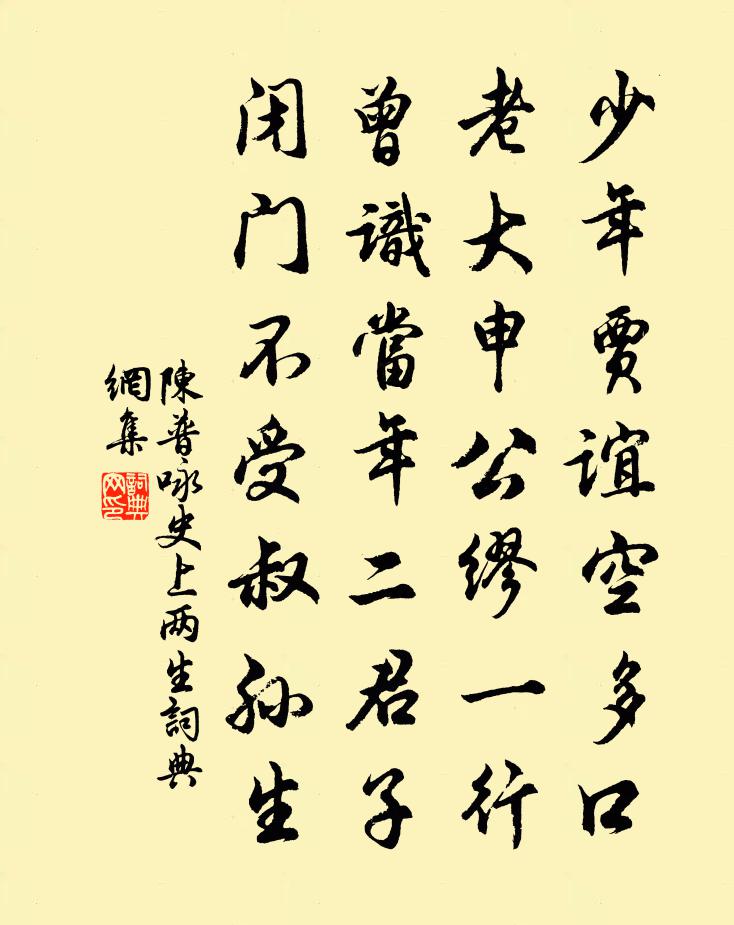 少年賈誼空多口
老大申公繆一行
曾識當年二君子
闭门不受叔孙生
陳普咏史上两生詞典
網集
詞典
网印